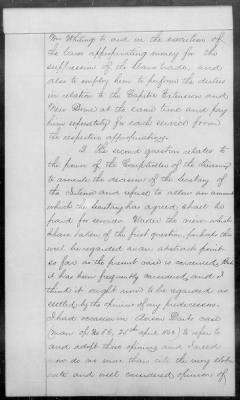 Mr Whiting to aid in the execution of
the laws appropriating money for the
suppression of the Slave trade, and
also to employ him to perform the duties
in relation to the Capitol Extension and
New Dome at the same time and pay
him separately for each service from
the respective appropriations.
2. The second question relates to
the power of the Comptroller of the Treasury
to overrule the decision of the Secretary of
the Interior and refuse to allow an amount
which the Secretary has agreed shall be
paid for services. Under the view which
I have taken of the first question, perhaps this
will be regarded as an abstract point
so far as the present case is concerned, but
it has been frequently considered, and I
think it ought now to be regarded as
settled by the opinions of my predecessors.
I had occasion in case
(man. op. 25th April 186) to refer to
and adopt those opinions and I need
now do no more than cite the very elabo-
rate and well considered opinion of